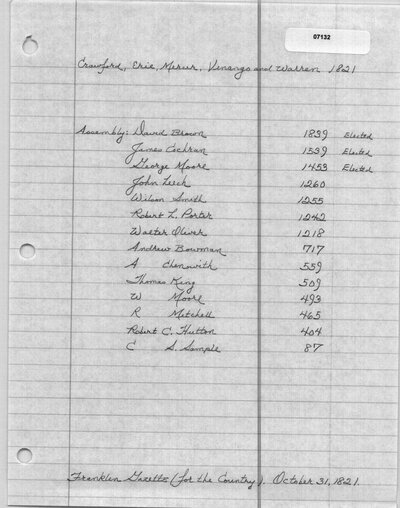 07132
Crawford, Erie, Mercer, Vinango and Warren 1821
Assembly: David Brown 1839 Elected
James Cochran 1539 Elected
George Moore 1453 Elected
John Leech 1260
Wilson Smith 1255
Robert L. Porter 1242
Walter Oliver 1218
Andrew Bowman 717
A Chenowith 559
Thomas King 509
W Moore 493
R Mitchell 465
Robert C. Hutton 404
C S. Sample 87
Franklin Gazette (for the Country). October 31, 1821.